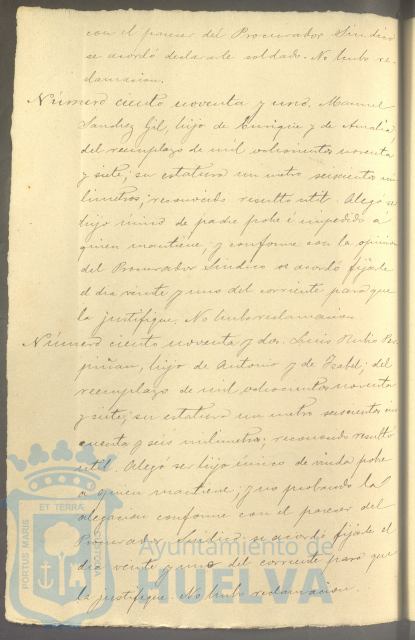 con el parecer del Procurador Sindico
se acordó declararle soldado. No hubo re-
clamacion.
Número ciento noventa y uno, Manuel
Sanchez Gil, hijo de Enrique y de Amalia,
del reemplazo de mil ochocientos noventa
y siete; su estatura un metro seiscientos mi
limetros; reconocido resultó util. Alegó ser
hijo único de padre pobre é impedido á
quien mantiene; y conforme con la opinion
del Procurador Sindico se acordó fijarle
el dia veinte y uno del corriente para que
la justifique. No hubo reclamacion.
Número ciento noventa y dos. Luis Rubio
hijo de Antonio y de Isabel; del
reemplazo de mil ochocientos noventa
y siete; su estatura un metro seiscientos cin
cuenta y seis milimetros; reconocido resultó
util. Alegó ser hijo único de viuda pobre
a quien mantiene; y no probando la
alegacion conforme con el parecer del
Procurador Sindico se acordó fijarle el
dia veinte y uno del corriente para que
la justifique. No hubo reclamacion.
PORTUS MARIS ET TERRÆ CUSTODIA
Ayuntamiento de
HUELVA